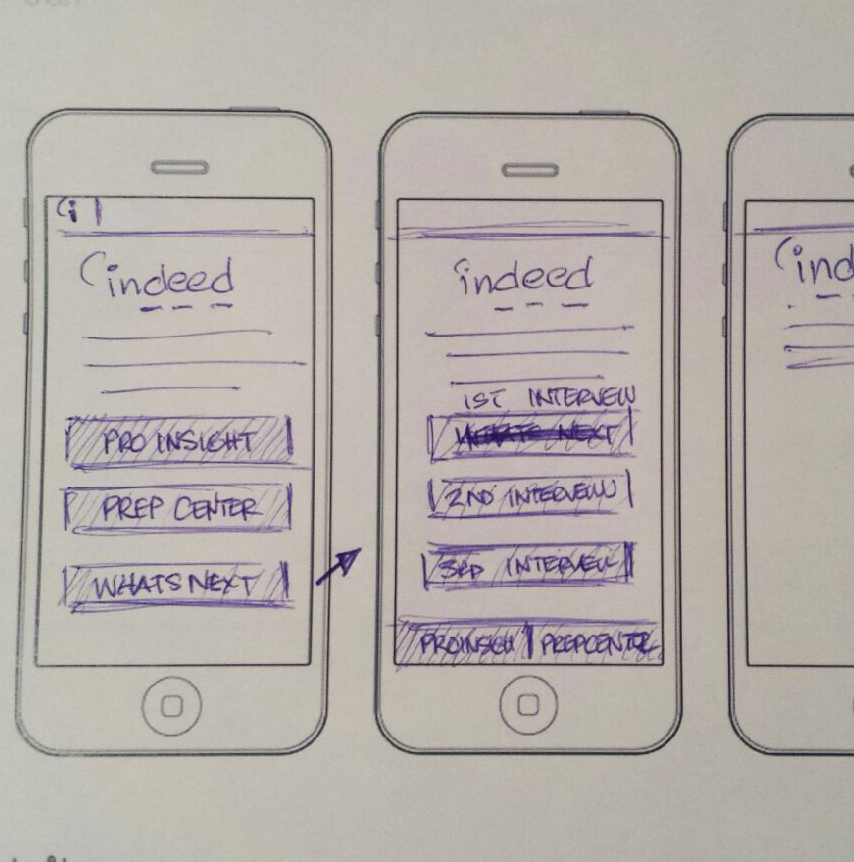 i
indeed
PRO INSIGHT
PREP CENTER
WHATS NEXT
indeed
1ST INTERVIEW
WHATS NEXT
2ND INTERVIEW
3RD INTERVIEW
PROINSIGH PREPCENTER
ind